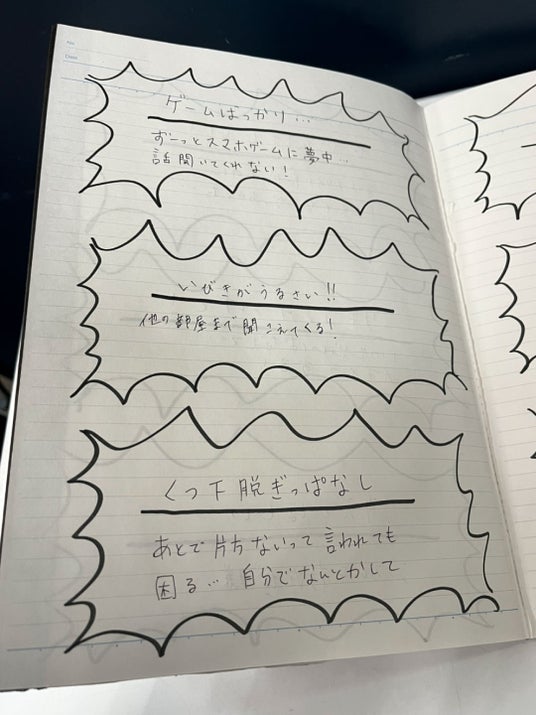 No.
Date
ゲームばっかり…
ずーっとスマホゲームに夢中…
話聞いてくれない!
いびきがうるさい!!
他の部屋まで聞こえてくる!
くつ下脱ぎっぱなし
あとで片方ないって言われても
困る… 自分でなんとかして